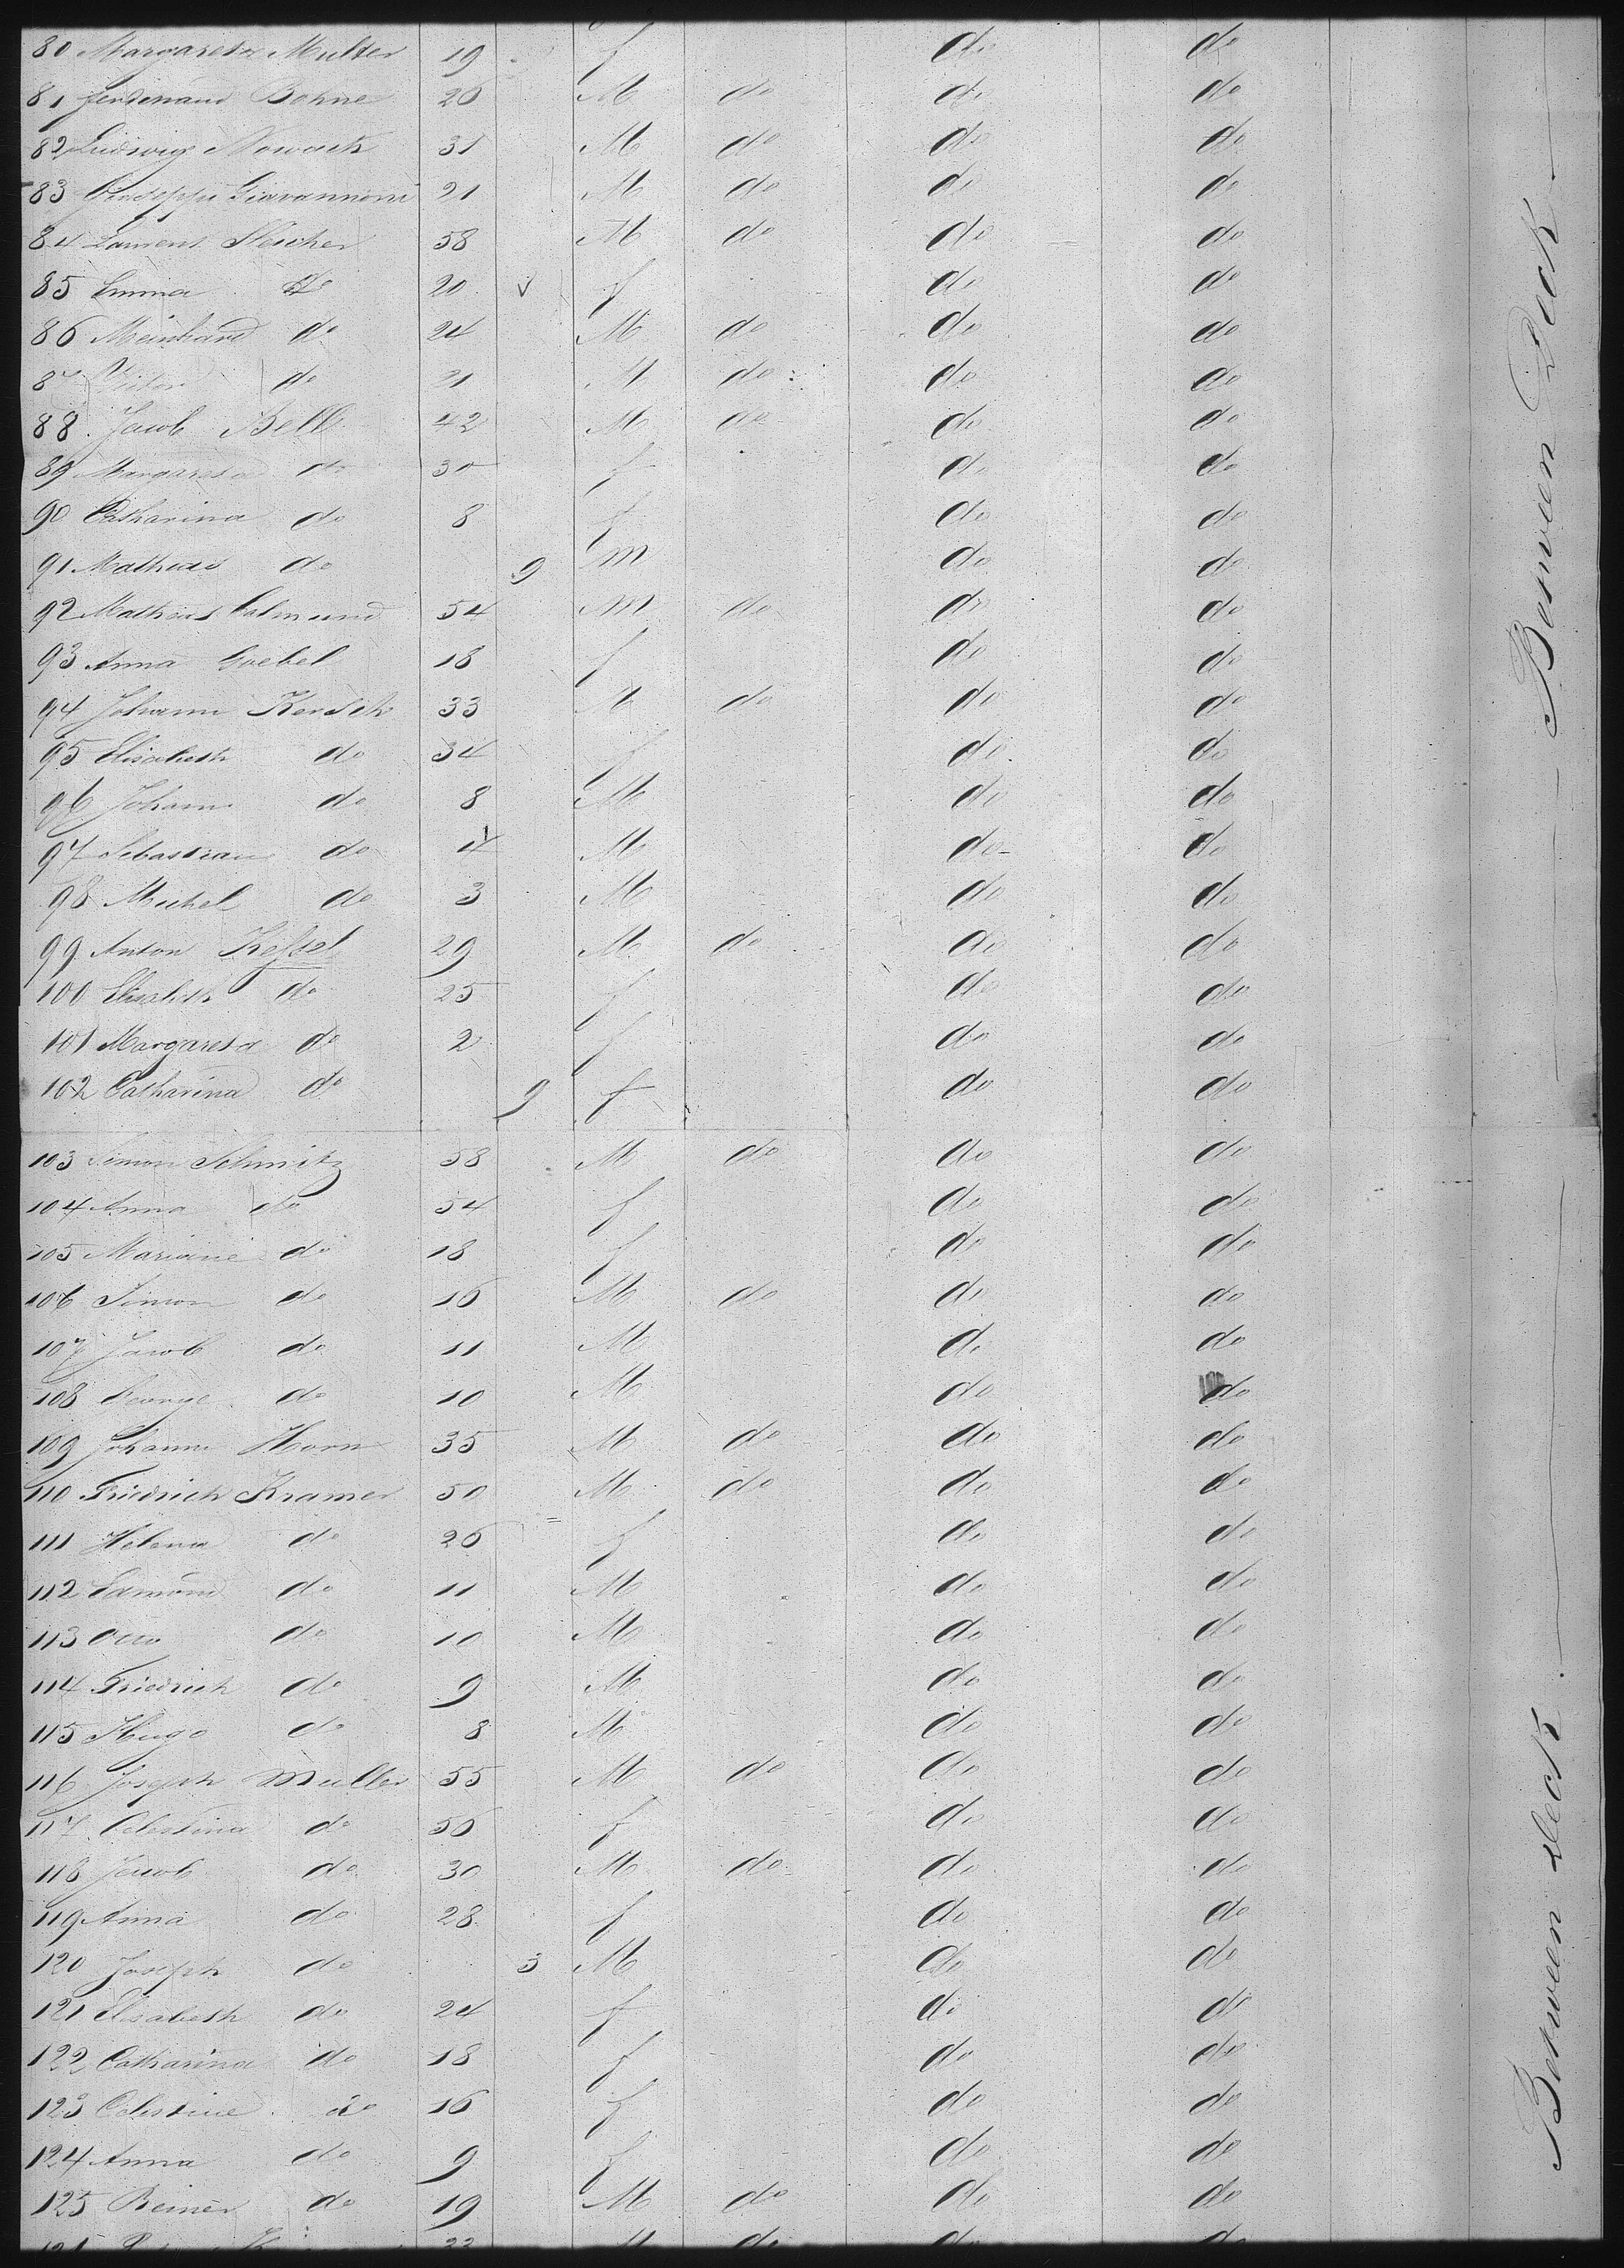 80 Margareta Muller 19 f do do
81 Ferdinand Bohne 26 M do do do
82 Ludwig Nowack 31 M do do do
83 Giuseppe Giavannoni 21 M do do do
84 Laurens Flescher 58 M do do do
85 Emma do 20 f do do
86 Meinhard do 24 M do do do
87 do 21 M do do do
88 Jacob Bell 42 M do do do
89 Margareta do 30 f do do
90 Catharina do 8 f do do
91 Mathias do 9 m do do
92 Mathias Calmund 54 m do do do
93 Anna Goebel 18 f do do
94 Johann Kersch 33 M do do do
95 Elisabeth do 34 f do do
96 Johann do 8 M do do
97 Sebastian do 4 M do do
98 Michel do 3 M do do
99 Anton Keßel 29 M do do do
100 Elisabeth do 25 f do do
101 Margareta do 2 f do do
102 Catharina do 9 f do do
103 Simon Schmitz 58 M do do do
104 Anna do 54 f do do
105 Mariane do 18 f do do
106 Simon do 16 M do do do
107 Jacob do 11 M do do
108 George do 10 M do do
109 Johann Horn 35 M do do do
110 Friedrich Kramer 50 M do do do
111 Helena do 26 f do do
112 Edmund do 11 M do do
113 Otto do 10 M do do
114 Friedrich do 9 M do do
115 Hugo do 8 M do do
116 Joseph Muller 55 M do do do
117 Celestina do 56 f do do
118 Jacob do 30 M do do do
119 Anna do 28 f do do
120 Joseph do 3 M do do
121 Elisabeth do 24 f do do
122 Catharina do 18 f do do
123 Celestine do 16 f do do
124 Anna do 9 f do do
125 Reiner do 19 M do do do
Between Deck
Between deck